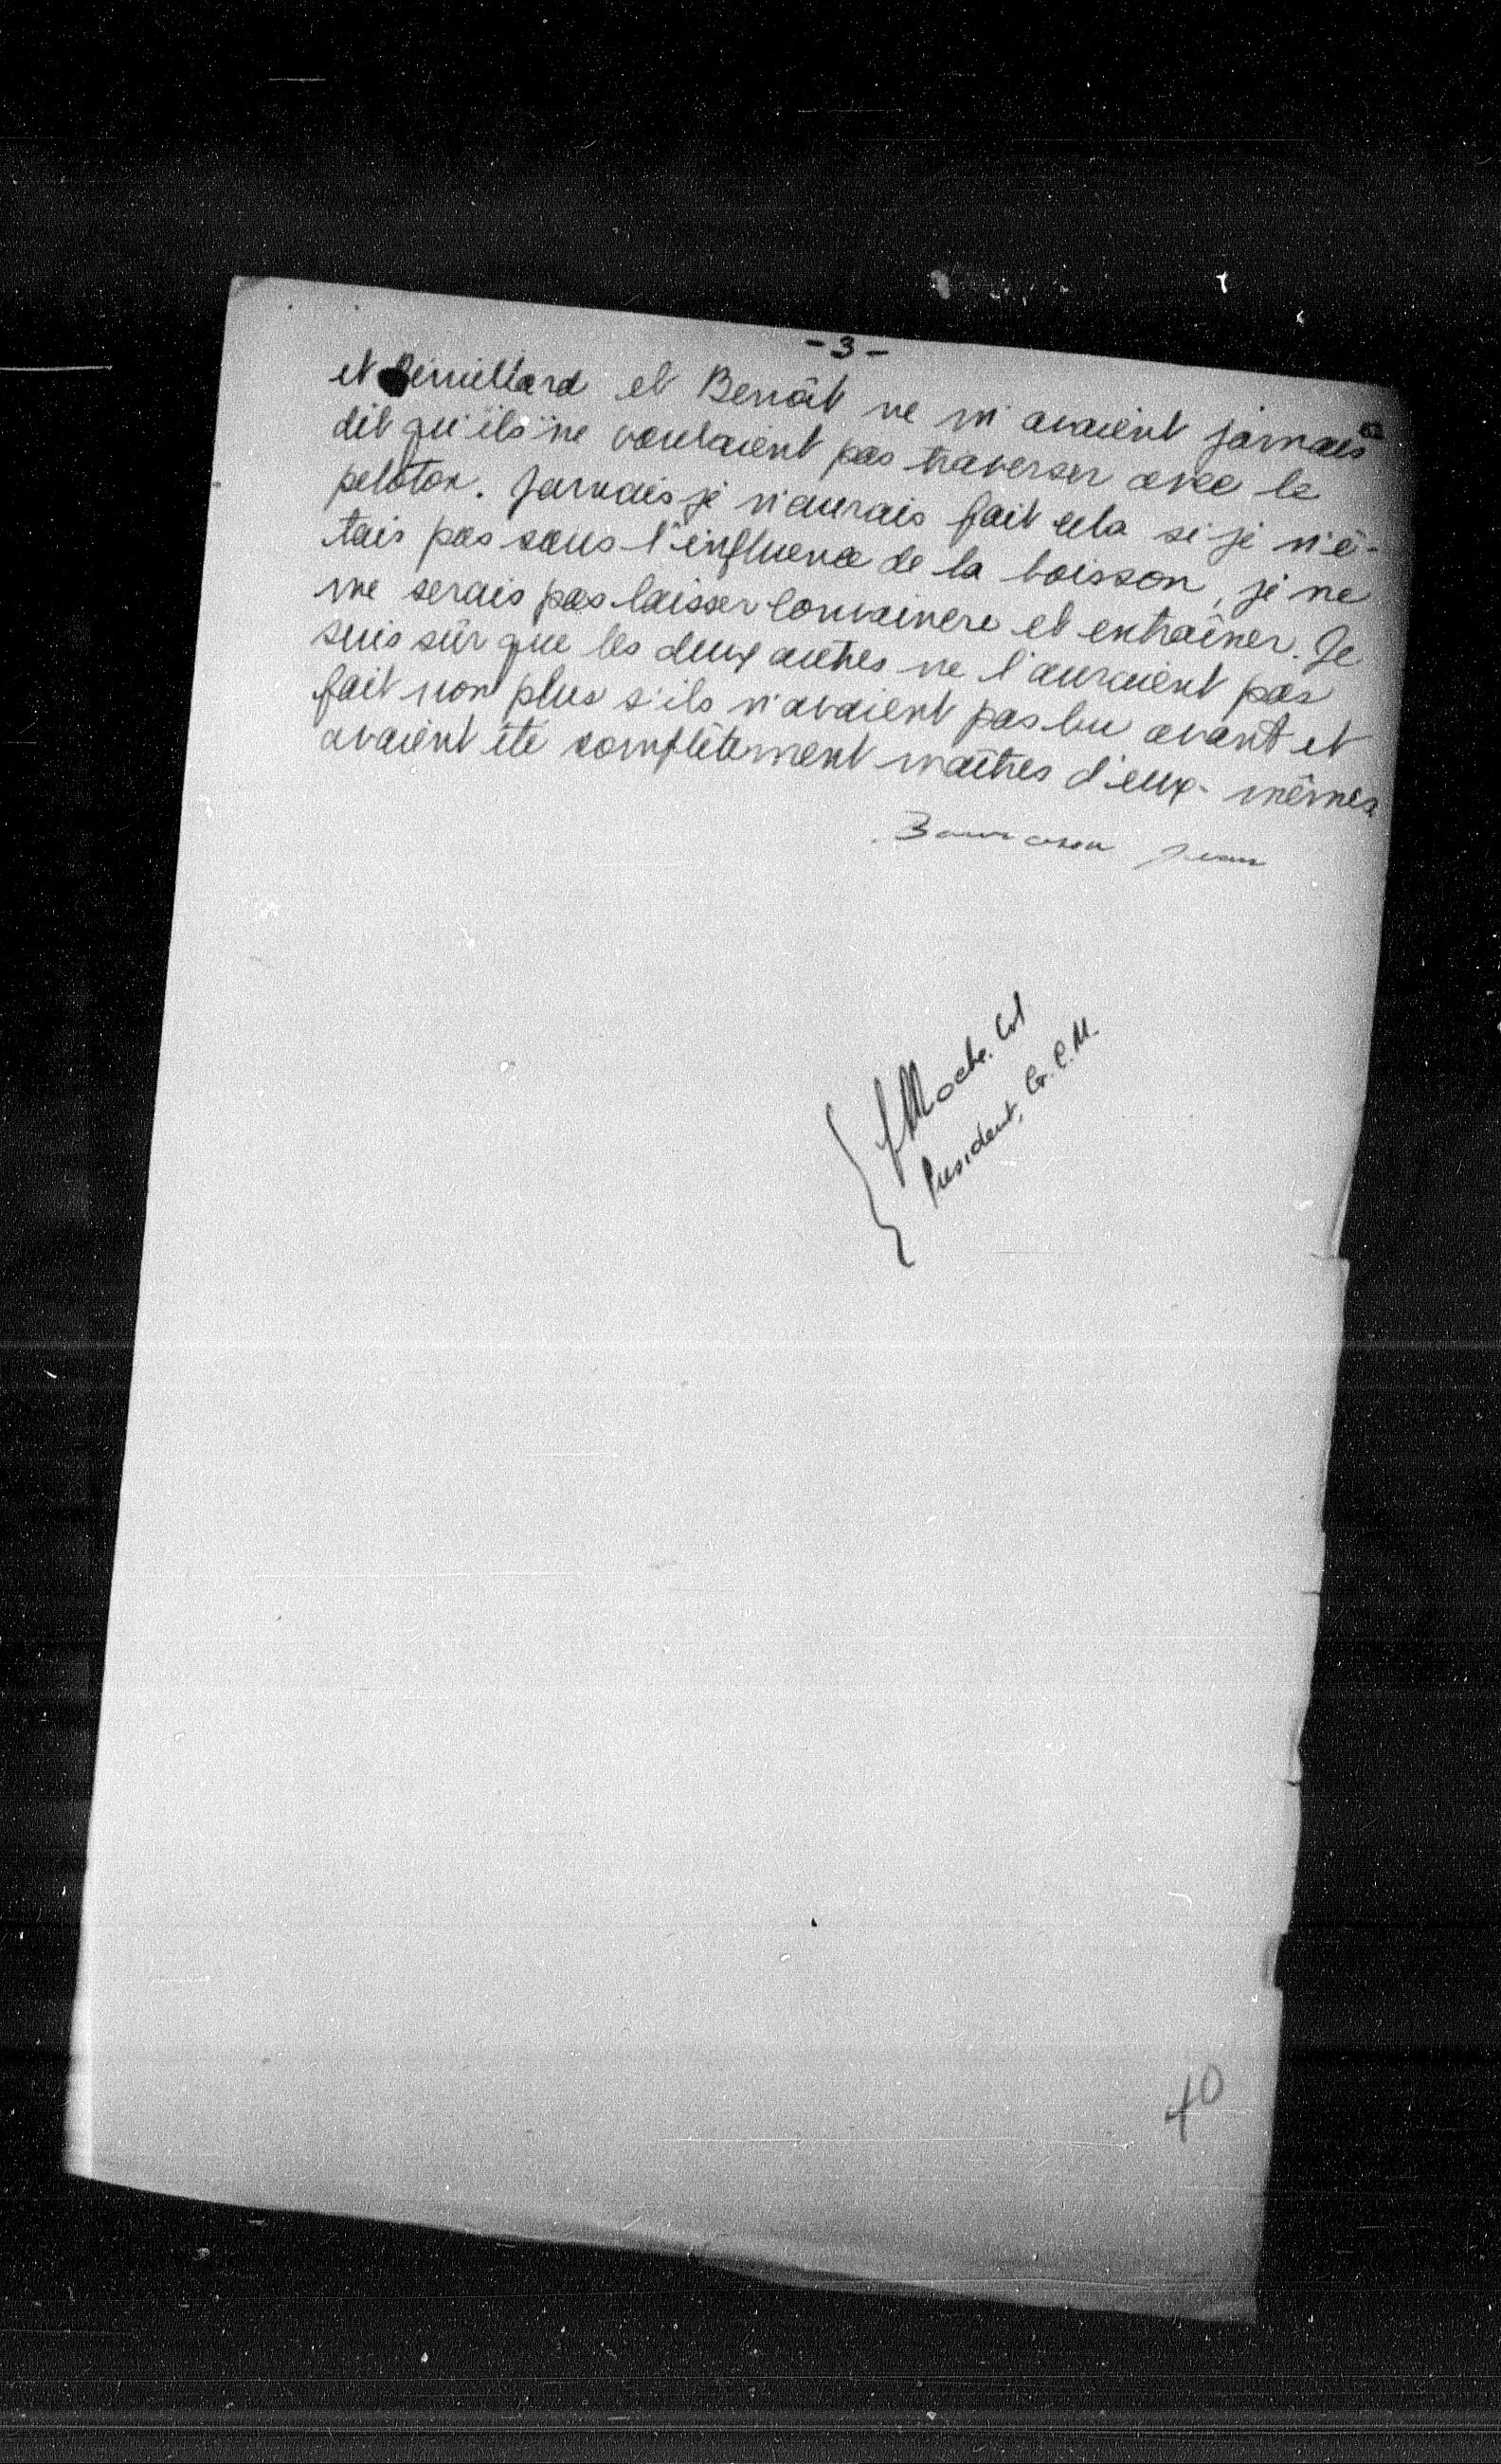 - 3 -
et Rémillard et Benoît ne m'avaient jamais
dit qu'ils ne voulaient pas traverser avec le
peloton. Jamais je n'aurais fait cela si je n'é-
tais pas sous l'influence de la boisson, je ne
me serais pas laisser convaincre et entraîner. Je
suis sûr que les deux autres ne l'auraient pas
fait non plus s'ils n'avaient pas bu avant et
avaient été complètement maîtres d'eux-mêmes
Jean
Col
President, G.C.M.
40